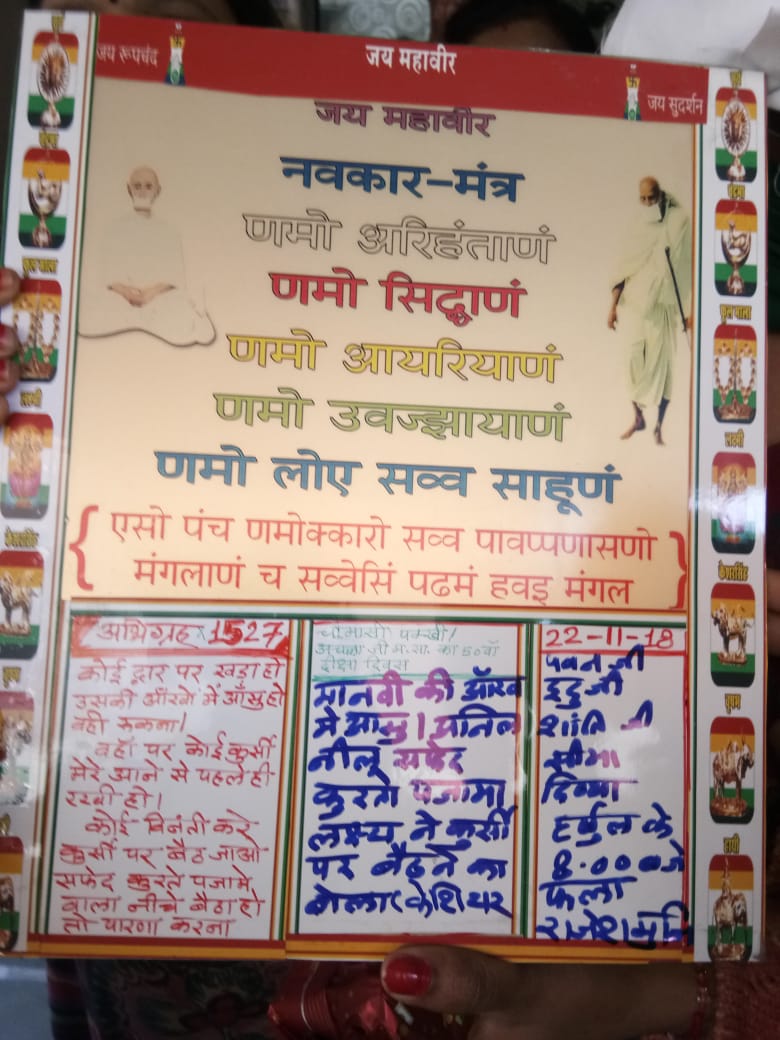 जय रूपचंद
जय महावीर
जय सुदर्शन
जय महावीर
नवकार-मंत्र
णमो अरिहंताणं
णमो सिद्धाणं
णमो आयरियाणं
णमो उवज्झायाणं
णमो लोए सव्व साहूणं
एसो पंच णमोक्कारो सव्व पावप्पणासणो
मंगलाणं च सव्वेसिं पढमं हवइ मंगल
अभिग्रह 1527
कोई द्वार पर खड़ा हो
उसकी आँखो में आँसु हो
वही रूकना।
वहाँ पर कोई कुर्सी
मेरे आने से पहले ही
रखी हो।
कोई विनंती करे
कुर्सी पर बैठ जाओ
सफेद कुरते पजामे
वाला नीचे बैठा हो
तो पारणा करना
चौमासी पक्खी।
म.सा. का 50वाँ
दीक्षा दिवस
मानवी की आँख
मे आसु। अनिल
नीलू सफेद
कुरता पजामा
लक्ष्य ने कुर्सी
पर बैठने का
बोला केशियर
22-11-18
पवन जी
इंदु जी
शांति जी
सीमा
दिव्या
के
8.00 बजे
फला
राजेश मुनि
लक्ष्मी
केशरसिंह
वृषभ
हाथी